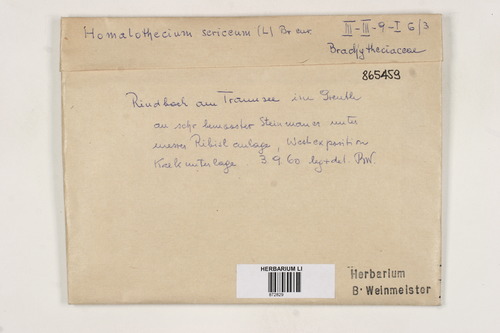 Homalothecium sericeum (L) Br eur.
III-III-9-I 6/3
Brachytheciaceae
865459
Rindbach am Traunsee im
an sehr Steinmauer unter
einer Ribisl anlage, Westexposition
Kalkunterlage. 3.9.60 leg+det. BW.
HERBARIUM LI
872829
Herbarium
B. Weinmeister